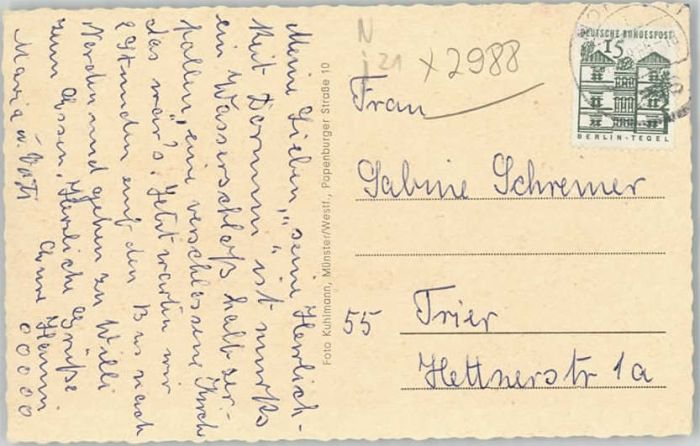 Meine Lieben, "seine Herrlich-
keit Dornum" ist nurß
ein Wasserschloß halb zer-
fallen, eine verschlossene Kirche
das war's. Jetzt warten wir
2 Stunden auf den Bus nach
Norden und gehen zu Willi
zum Essen. Herzliche Grüße
Maria u. Vati
00000
N
j 21
x 2988
DEUTSCHE BUNDESPOST
15
BERLIN-TEGEL
Frau
Sabine Schremer
55 Trier
Hettnerstr 1a
Foto Kuhlmann, Münster/Westf., Papenburger Straße 10